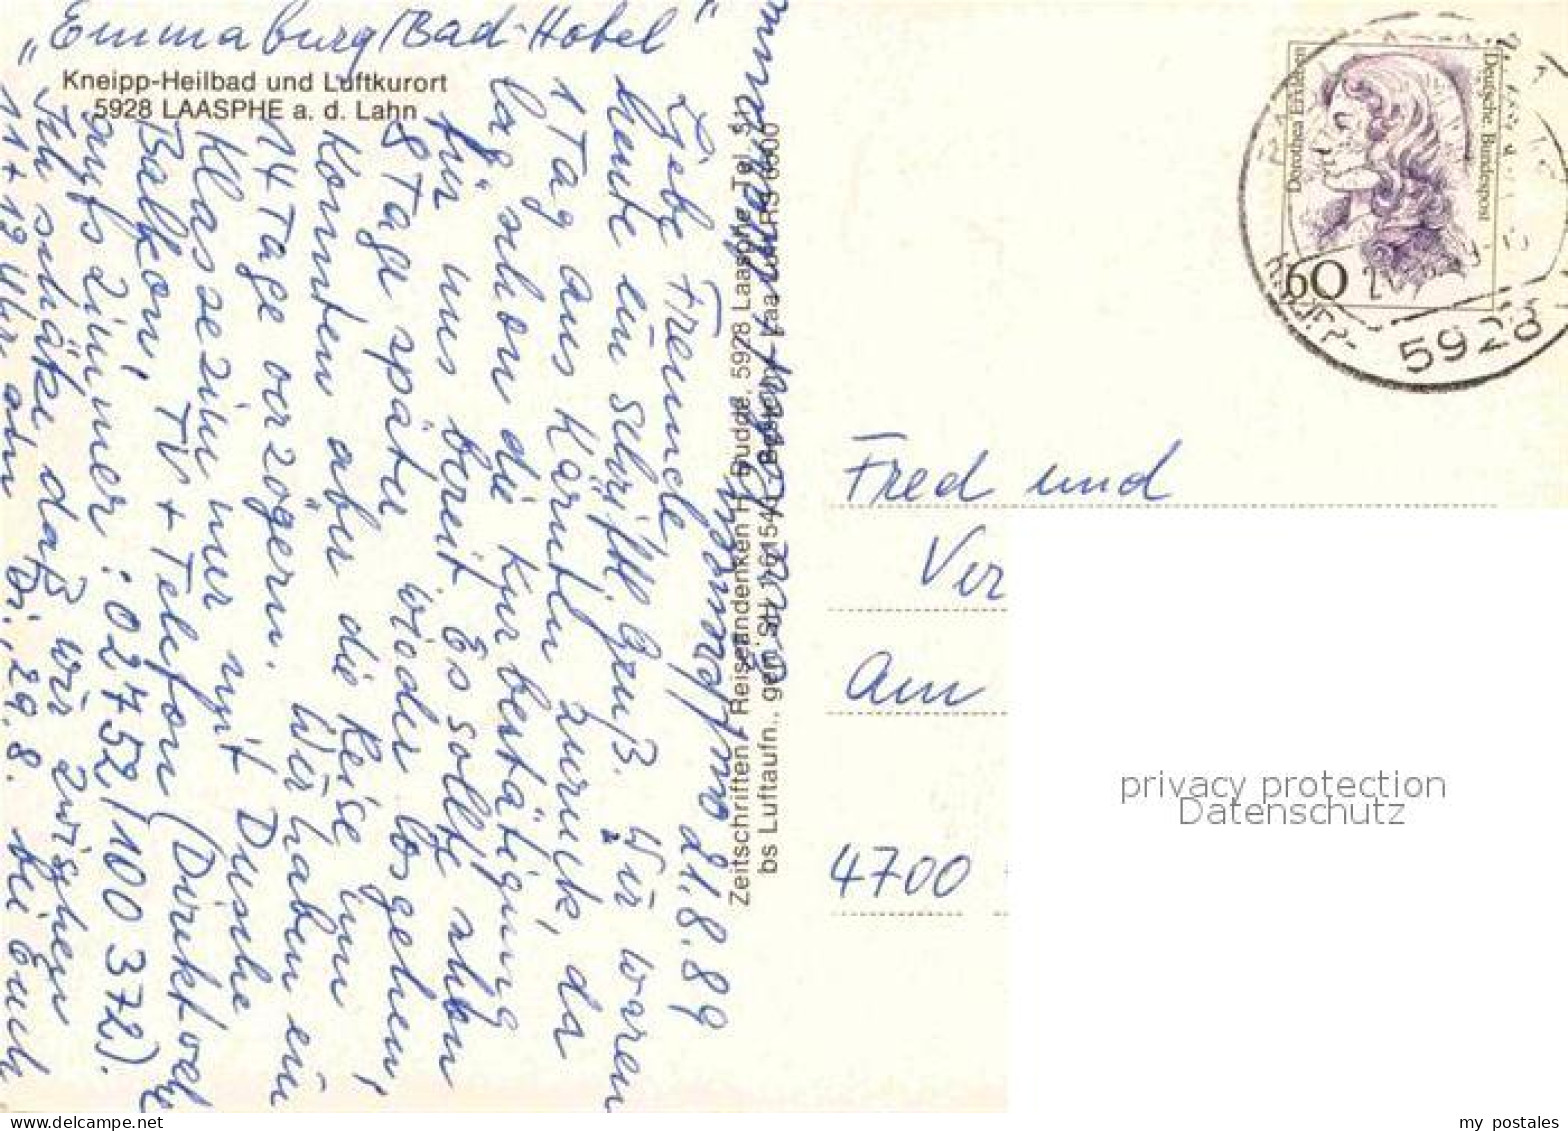 „Emmaburg/Bad-Hotel"
Kneipp-Heilbad und Luftkurort
5928 LAASPHE a. d. Lahn
21.8.89
Liebe Freunde,
heute ein schriftl. Gruß. Wir waren
1 Tag aus Kärnten zurück, da
lag schon die Kurbestätigung
für uns bereit. Es sollte schon
8 Tage später wieder losgehen,
konnten aber die Reise um
14 Tage verzögern. Wir haben ein
Klassezimmer mit Dusche
Balkon, TV + Telefon (Direkt
aufs Zimmer: 02752/100 372).
Ich schätze daß wir zwischen
11 + 12 Uhr am Di., 29.8. bei Euch
Zeitschriften - Reiseandenken H. Budde, 5928 Laasphe, Tel.
bs Luftaufn., gen.
Deutsche Bundespost
Dorothea Erxleben
60
5928
Fred und
Ver
Am
4700
privacy protection
Datenschutz
my postales